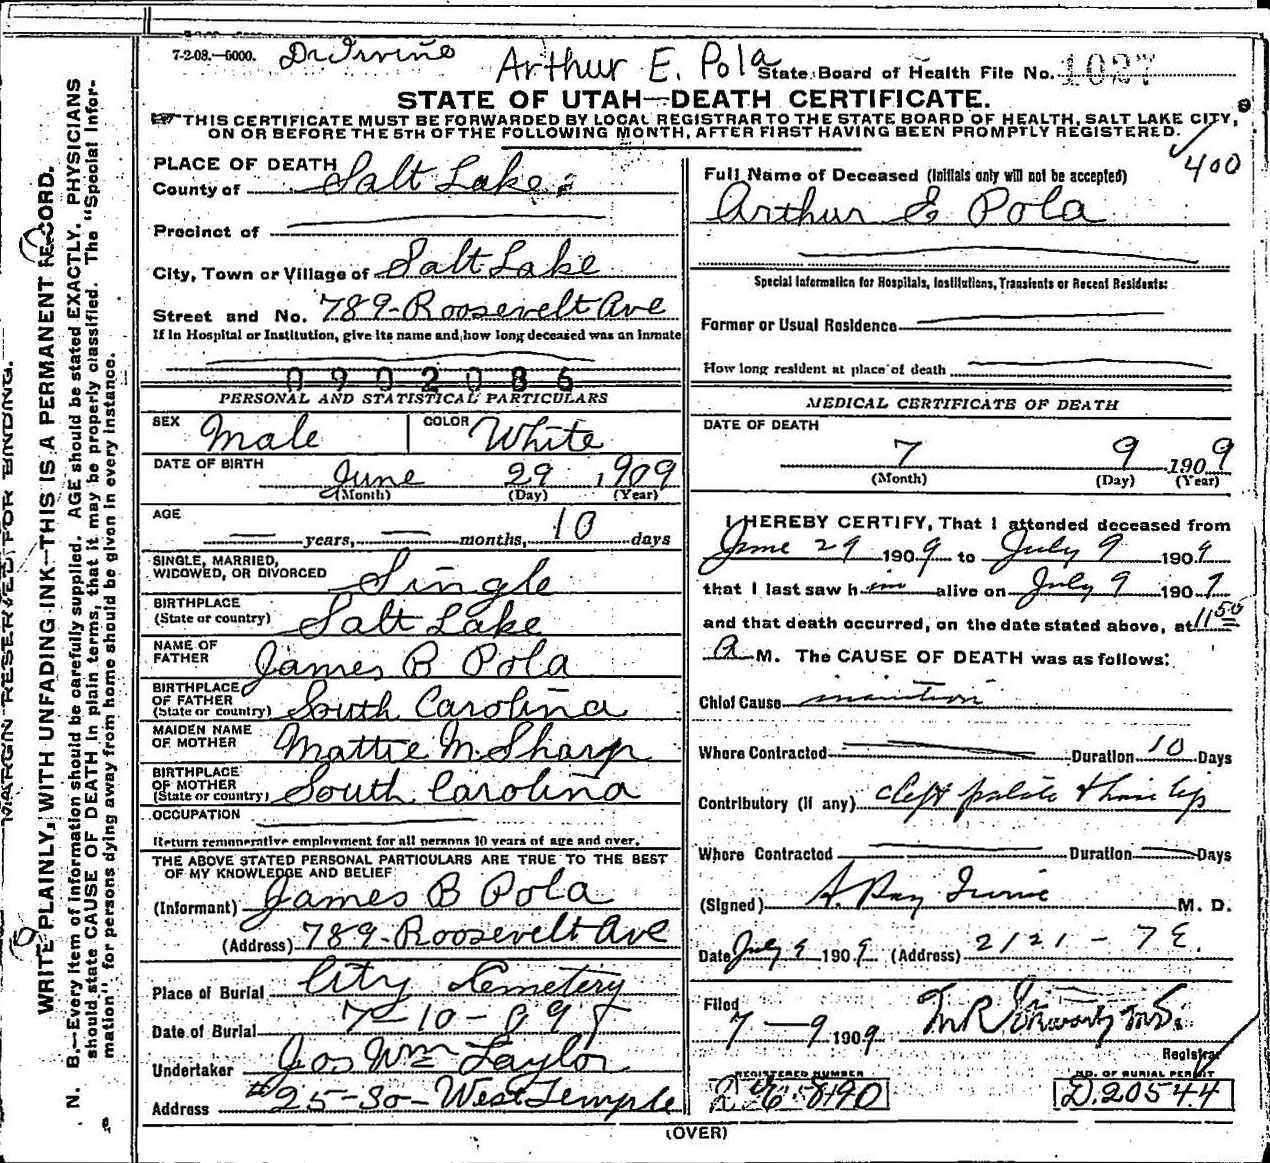 7-2-08.—5000. Dr Irvine Arthur E. Pola State Board of Health File No. 1027
STATE OF UTAH—DEATH CERTIFICATE.
THIS CERTIFICATE MUST BE FORWARDED BY LOCAL REGISTRAR TO THE STATE BOARD OF HEALTH, SALT LAKE CITY,
ON OR BEFORE THE 5TH OF THE FOLLOWING MONTH, AFTER FIRST HAVING BEEN PROMPTLY REGISTERED.
400
PLACE OF DEATH
County of Salt Lake
Precinct of
City, Town or Village of Salt Lake
Street and No. 789-Roosevelt Ave
If in Hospital or Institution, give its name and how long deceased was an inmate
0902086
PERSONAL AND STATISTICAL PARTICULARS
SEX Male COLOR White
DATE OF BIRTH June 29 1909
(Month) (Day) (Year)
AGE
years, months, 10 days
SINGLE, MARRIED,
WIDOWED, OR DIVORCED Single
BIRTHPLACE
(State or country) Salt Lake
NAME OF
FATHER James B Pola
BIRTHPLACE
OF FATHER
(State or country) South Carolina
MAIDEN NAME
OF MOTHER Mattie M. Sharp
BIRTHPLACE
OF MOTHER
(State or country) South Carolina
OCCUPATION
Return remunerative employment for all persons 10 years of age and over.
THE ABOVE STATED PERSONAL PARTICULARS ARE TRUE TO THE BEST
OF MY KNOWLEDGE AND BELIEF
(Informant) James B Pola
(Address) 789-Roosevelt Ave
Place of Burial City Cemetery
Date of Burial 7-10-09
Undertaker Jos Wm Taylor
Address # 25-So-West Temple
Full Name of Deceased (Initials only will not be accepted)
Arthur E Pola
Special Information for Hospitals, Institutions, Transients or Recent Residents:
Former or Usual Residence
How long resident at place of death
MEDICAL CERTIFICATE OF DEATH
DATE OF DEATH
7 9 1909
(Month) (Day) (Year)
I HEREBY CERTIFY, That I attended deceased from
June 29 1909 to July 9 1909
that I last saw him alive on July 9 1909
and that death occurred, on the date stated above, at 11 50
A M. The CAUSE OF DEATH was as follows:
Chief Cause inanition
Where Contracted Duration 10 Days
Contributory (if any) cleft palate & hare lip
Where Contracted Duration Days
(Signed) A. Ray Irvine M. D.
Date July 9 1909 (Address) 2121 - 7 E.
Filed
7-9 1909
Registrar
REGISTERED NUMBER NO. OF BURIAL PERMIT
D.20544
(OVER)
MARGIN RESERVED FOR BINDING.
WRITE PLAINLY, WITH UNFADING INK—THIS IS A PERMANENT RECORD.
N. B.—Every item of information should be carefully supplied. AGE should be stated EXACTLY. PHYSICIANS
should state CAUSE OF DEATH in plain terms, that it may be properly classified. The "Special Infor-
mation" for persons dying away from home should be given in every instance.